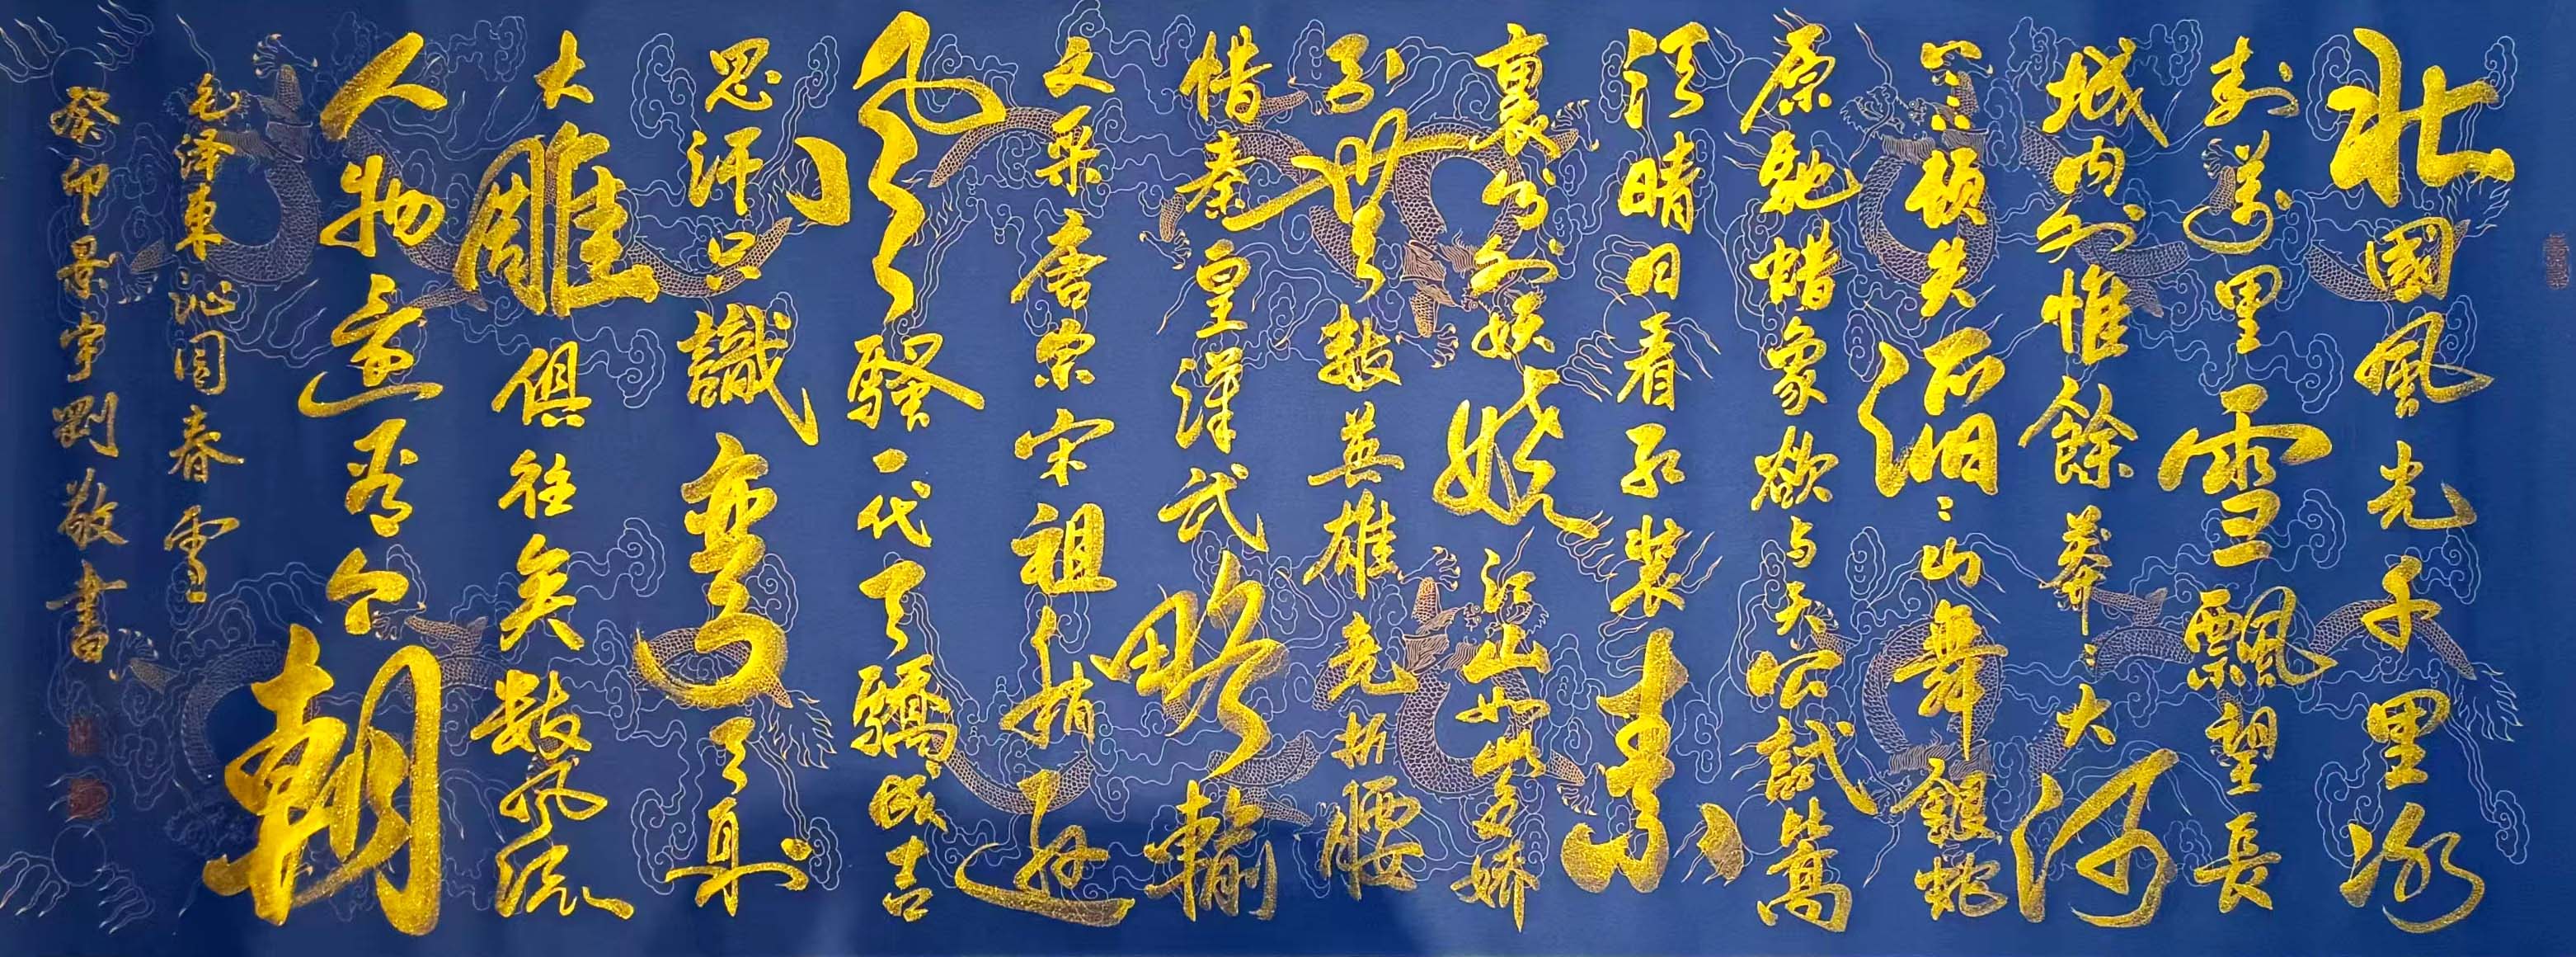 北國風光千里冰
封萬里雪飄望長
城内外惟餘莽〻大河
上下頓失滔〻山舞銀蛇
原馳蜡象欲与天公試比高
須晴日看红装素
裹分外妖娆江山如此多娇
引無數英雄竞折腰
惜秦皇漢武略輸
文采唐宗宋祖稍逊
风騷一代天驕成吉
思汗只識弯弓射
大雕俱往矣數风流
人物還看今朝
毛泽東沁園春雪
癸卯景宇劉敬書